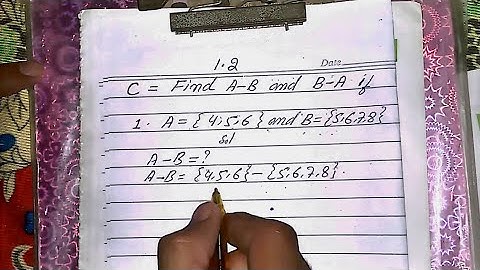 1.2
Date
C = Find A-B and B-A if
1. A = {4,5,6} and B = {5,6,7,8}
sol
A-B = ?
A-B = {4,5,6} - {5,6,7,8}.